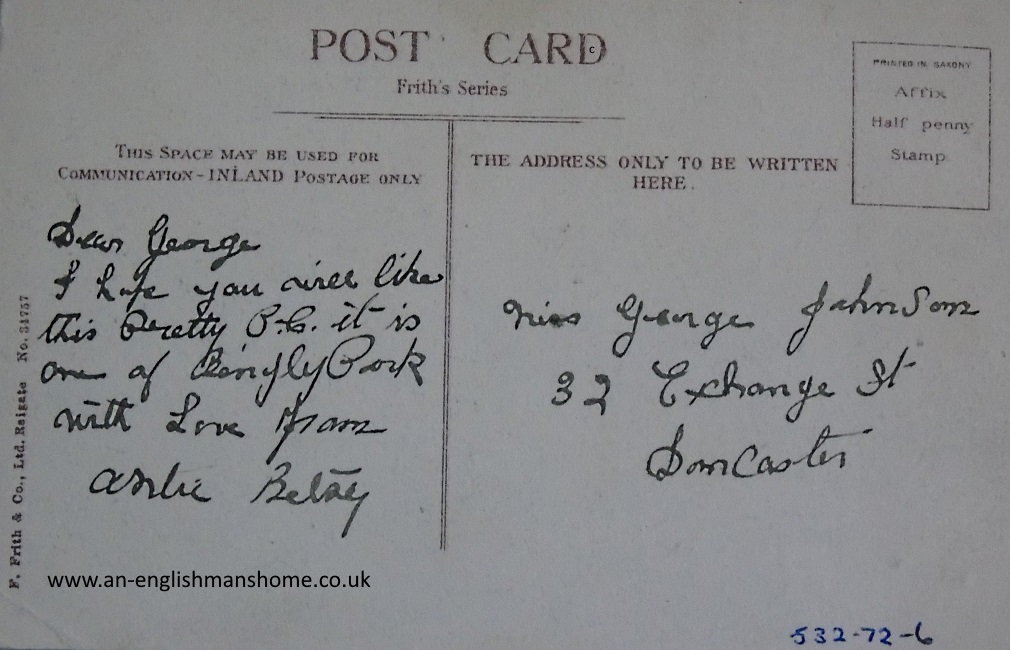 POST CARD
Frith's Series
PRINTED IN SAXONY
Affix
Half penny
Stamp
THIS SPACE MAY BE USED FOR
COMMUNICATION - INLAND POSTAGE ONLY
THE ADDRESS ONLY TO BE WRITTEN
HERE.
Dear George
I hope you will like
this Pretty P.C. it is
one of Bingly Park
with Love from
Betsy
Miss George Johnson
32 Exchange St
Doncaster
F. Frith & Co., Ltd. Reigate No. 31757
www.an-englishmanshome.co.uk
532-72-6